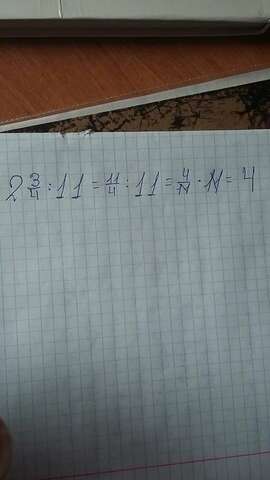 2 3/4 : 11 = 11/4 : 11 = 4/11 · 11 = 4